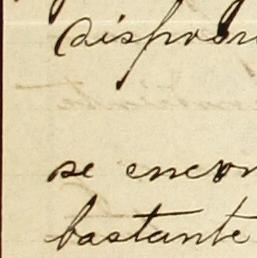 dispon
se encon
bastante